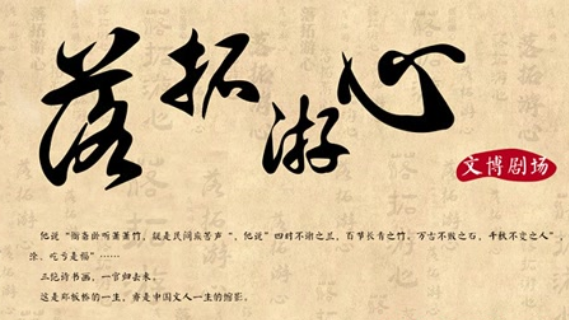 落拓游心
文博剧场
他说“衙斋卧听萧萧竹，疑是民间疾苦声“，他说”四时不谢之兰，百节长青之竹，万古不败之石，千秋不变之人”，
涂、吃亏是福”……
三绝诗书画，一官归去来，
这是郑板桥的一生，亦是中国文人一生的缩影。